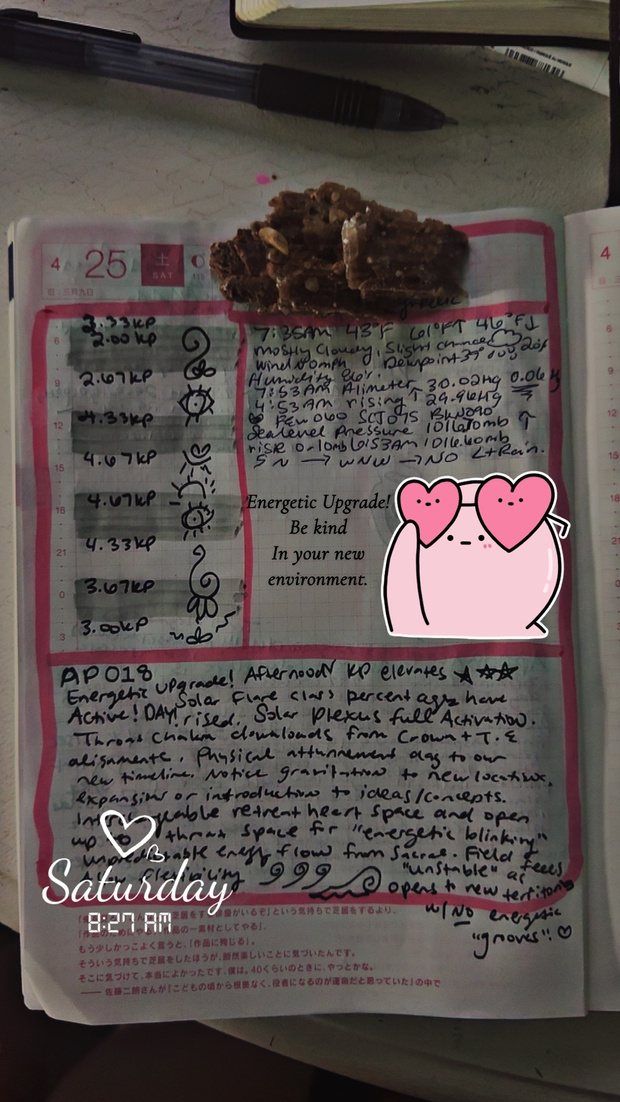 4 25 土
SAT
旧 三月九日
3.33KP
2.00KP
2.67KP
4.33KP
4.67KP
4.67KP
4.33KP
3.67KP
3.00KP
6
9
12
15
18
21
0
3
7:35AM 43°F 61°F↑ 46°F↓
mostly cloudy, Slight chance
wind 0mph Dewpoint 39
Humidity 86%
7:53AM Altimeter 30.02Hg 0.06
4:53AM rising ↑ 29.96Hg
FEW060 SCT075 BKN090
Sealevel Pressure 1016.70mb ↑
rise 0.10mb 6:53AM 1016.60mb
S N → WNW → NO L+Rain.
Energetic Upgrade!
Be kind
In your new
environment.
AP018
Energetic Upgrade! Afternoon KP elevates
Active! DAY! Solar Flare class percentages have
rised. Solar Plexus full Activation.
Throat Chakra downloads from Crown + T.E
alignments. Physical attunement day to our
new timeline. Notice gravitation to new locations,
expansion or introduction to ideas/concepts.
retreat heart space and open
up throat space for "energetic blinking"
Unpredictable energy flow from Sacral. Field feels
flexibility "unstable" as
opens to new territories
w/ NO energetic
"grooves".
Saturday
8:27 AM
という気持ちで芝居をするより、
もう少しかっこよく言うと、「作品に殉じる」。
そういう気持ちで芝居をしたほうが、断然楽しいことに気づいたんです。
そこに気づけて、本当によかったです、僕は。40くらいのときに、やっとかな。
—— 佐藤二朗さんが『こどもの頃から根拠なく、役者になるのが運命だと思っていた』の中で
4